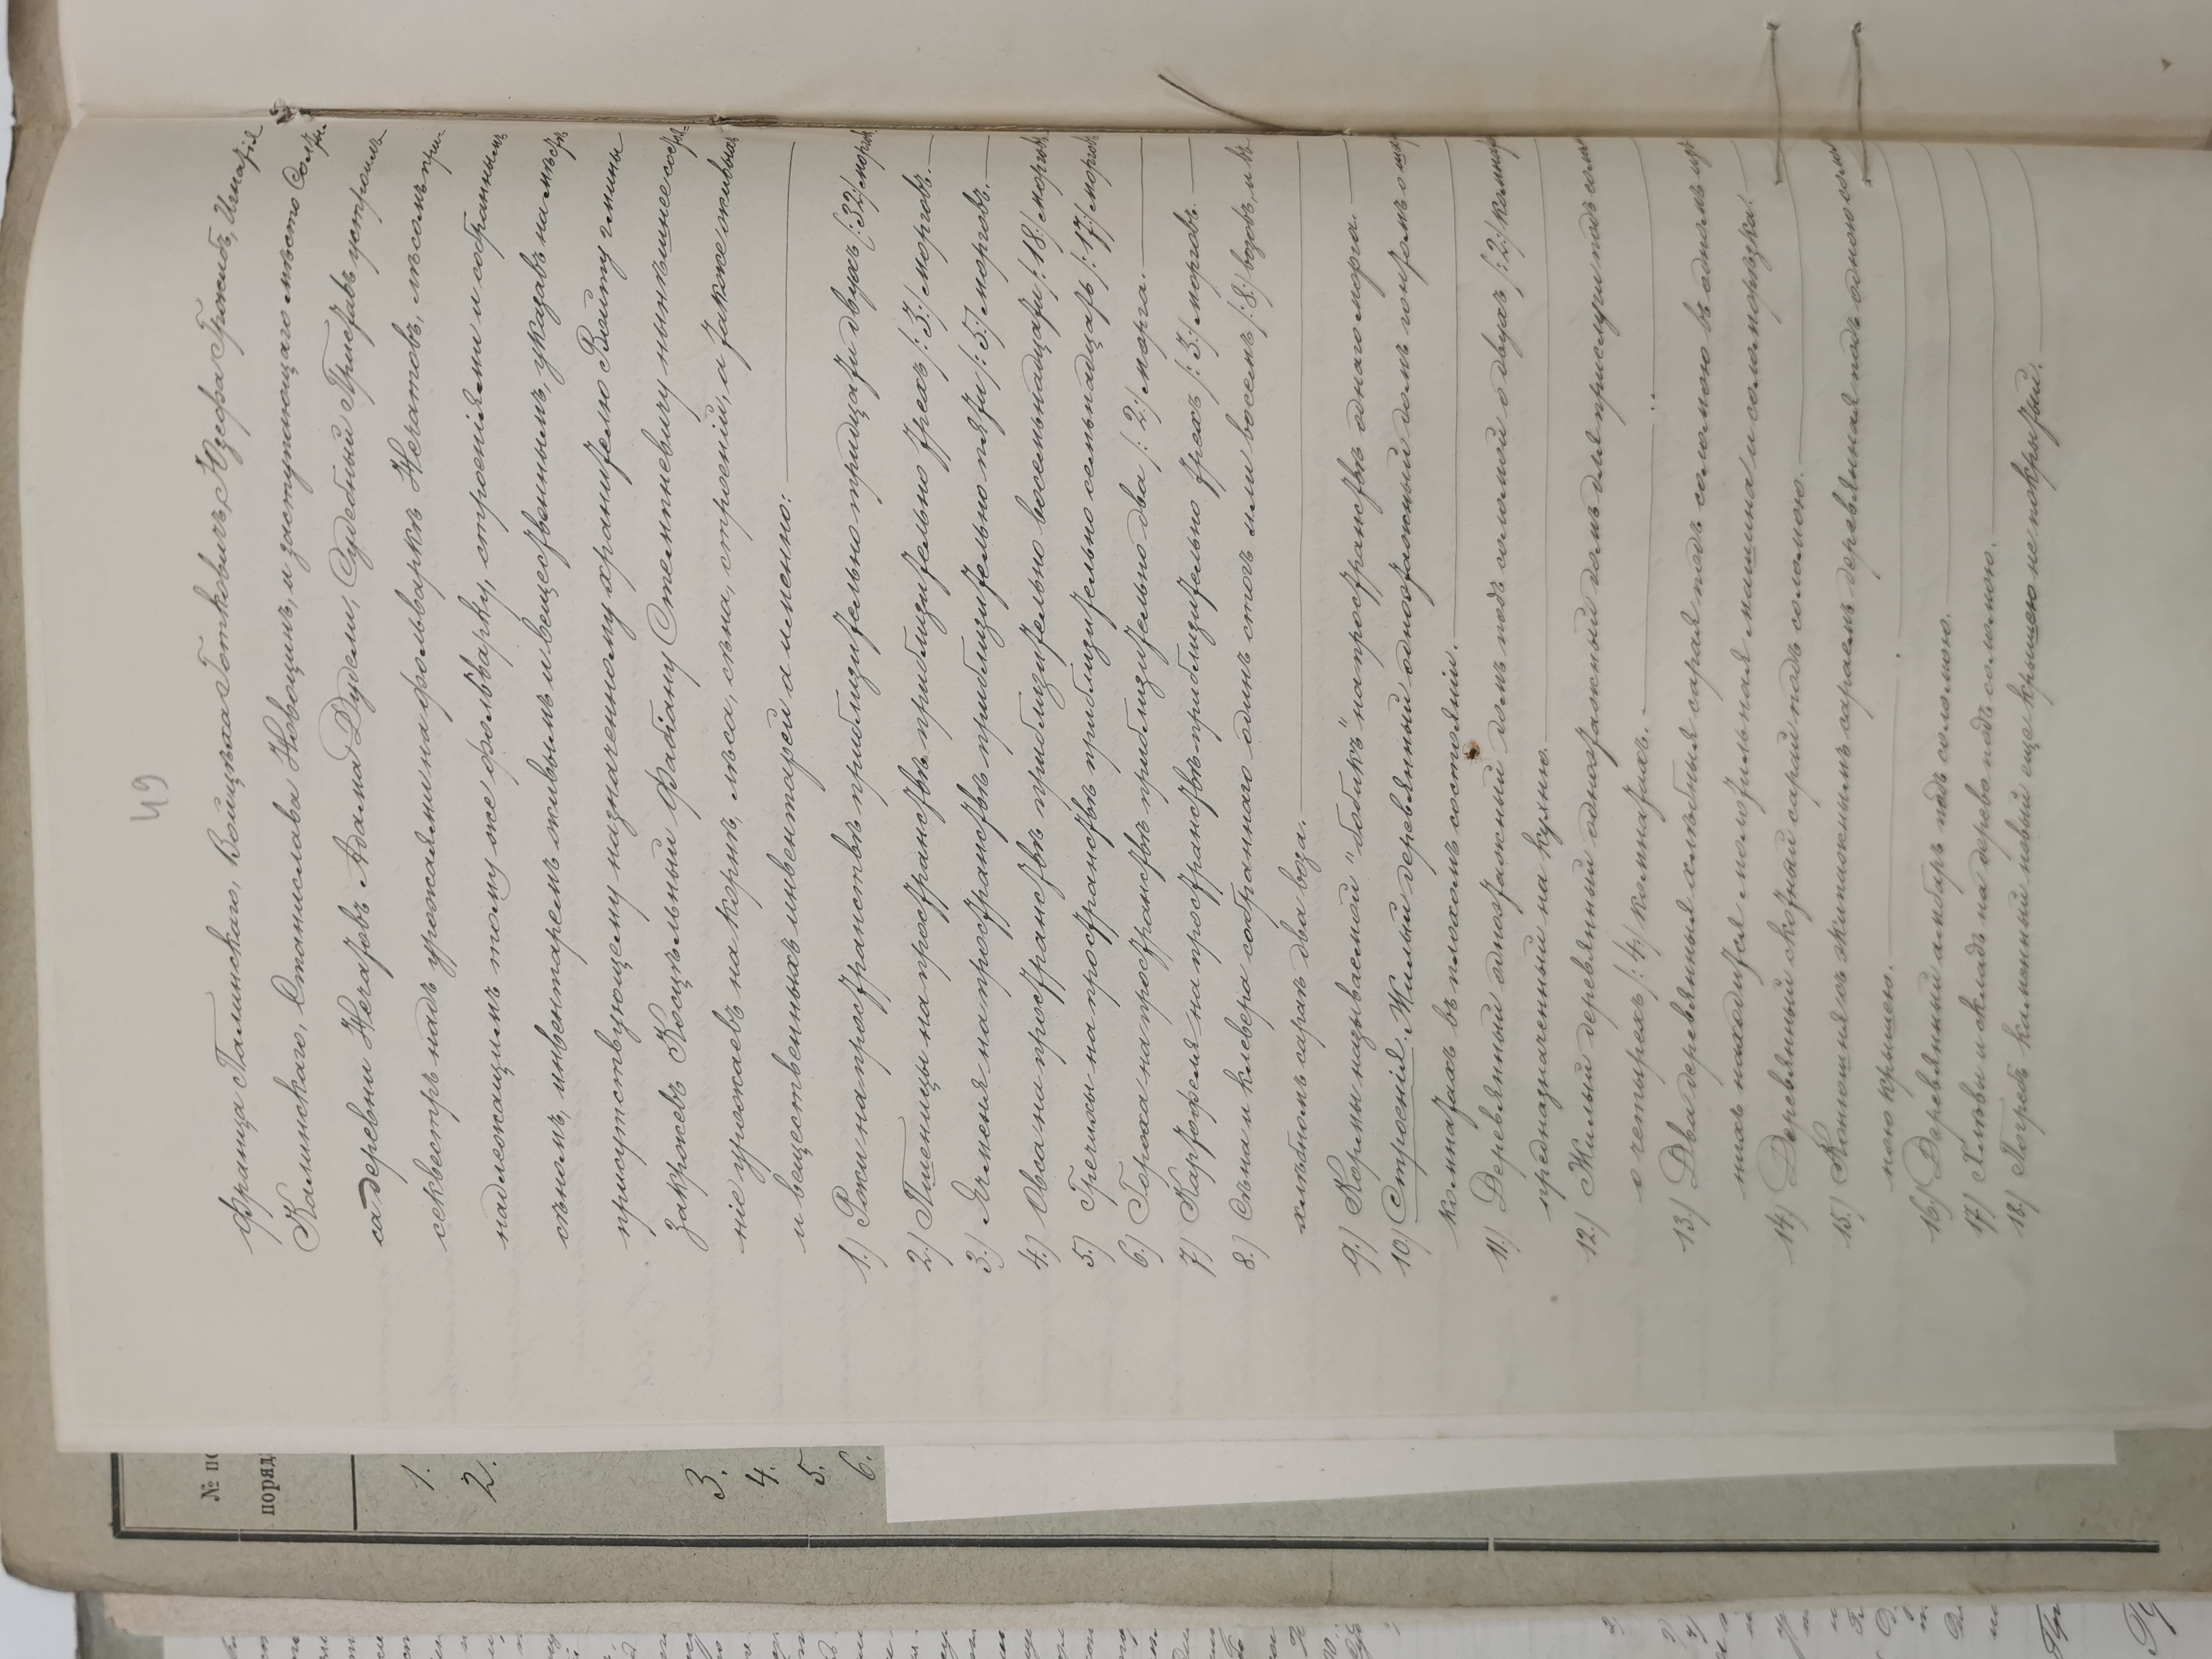 49
Франца Галинскаго, Войцѣха Готковича, Юзефа Гржибъ, Игнатія
Калинскаго, Станислава Новоцинъ, и заступающаго мѣсто Солты-
са деревни Нечатовъ Адама Дудели, Судебный Приставъ устроилъ
секвестръ надъ урожаями на фольваркѣ Нечатовъ, лѣсомъ при-
надлежащимъ тому же фольварку, строеніями и собраннымъ
сѣномъ, инвентаремъ живымъ и вещественнымъ, указавъ на мѣстѣ
присутствующему назначенному хранителю Войту гмины
Закржевъ Косцѣльный Фабіану Стемпневичу нынѣшнее состоя-
ніе урожаевъ на корнѣ, лѣса, сѣна, строеній, а также живыхъ
и вещественныхъ инвентарей а именно:
1.) Ржи на пространствѣ приблизительно тридцати двухъ /:32:/ моргов
2.) Пшеницы на пространствѣ приблизительно трехъ /:3:/ морговъ.
3.) Ячменя на пространствѣ приблизительно пяти /:5:/ морговъ.
4.) Овса на пространствѣ приблизительно восемьнадцати /:18:/ моргов
5.) Гречихи на пространствѣ приблизительно семьнадцать /:17:/ моргов
6.) Гороха на пространствѣ приблизительно два /:2:/ морга.
7.) Картофеля на пространствѣ приблизительно трехъ /:3:/ морговъ.
8.) Сѣна и клевера собраннаго одинъ стогъ или восемь /:8:/ возовъ, и въ
хлѣбномъ сараѣ два воза.
9.) Кормы называемой "бобикъ" на пространствѣ однаго морга.
10.) Строенія. Жилый деревянный одноэтажный домъ подъ гонтомъ о
комнатахъ въ плохомъ состояніи.
11.) Деревянный одноэтажный домъ подъ соломой о двухъ /:2:/ комнат
предназначенный на кухню.
12.) Жилый деревянный одноэтажный домъ для прислуги подъ солом
о четырехъ /:4:/ комнатахъ.
13.) Два деревянныя хлѣбныя сарая подъ соломою въ одномъ изъ
нихъ находится молотильная машина и соломорѣзка.
14.) Деревянный скотный сарай подъ соломою.
15.) Конюшня съ экипажнымъ сараемъ деревянная подъ одною солом
ною крышею.
16.) Деревянный амбаръ подъ соломою.
17.) Хлѣвы и складъ на дерево подъ соломою.
18.) Погребъ каменный новый еще крышею не покрытый.
№ по
поряд
1.
2.
3.
4.
5.
6.